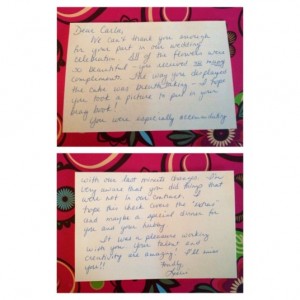 Dear Carla,
We can't thank you enough
for your part in our wedding
celebration. All of the flowers were
so beautiful - you received so many
compliments. The way you displayed
the cake was breathtaking - I hope
you took a picture to put in your
brag book!
You were especially accommodating
with our last minute changes. I'm
very aware that you did things that
were not in our contract. I
hope this check covers the "extras"
and maybe a special dinner for
you and your hubby.
It was a pleasure working
with you. Your talent and
creativity are amazing. I'll miss
you!!
Fondly,